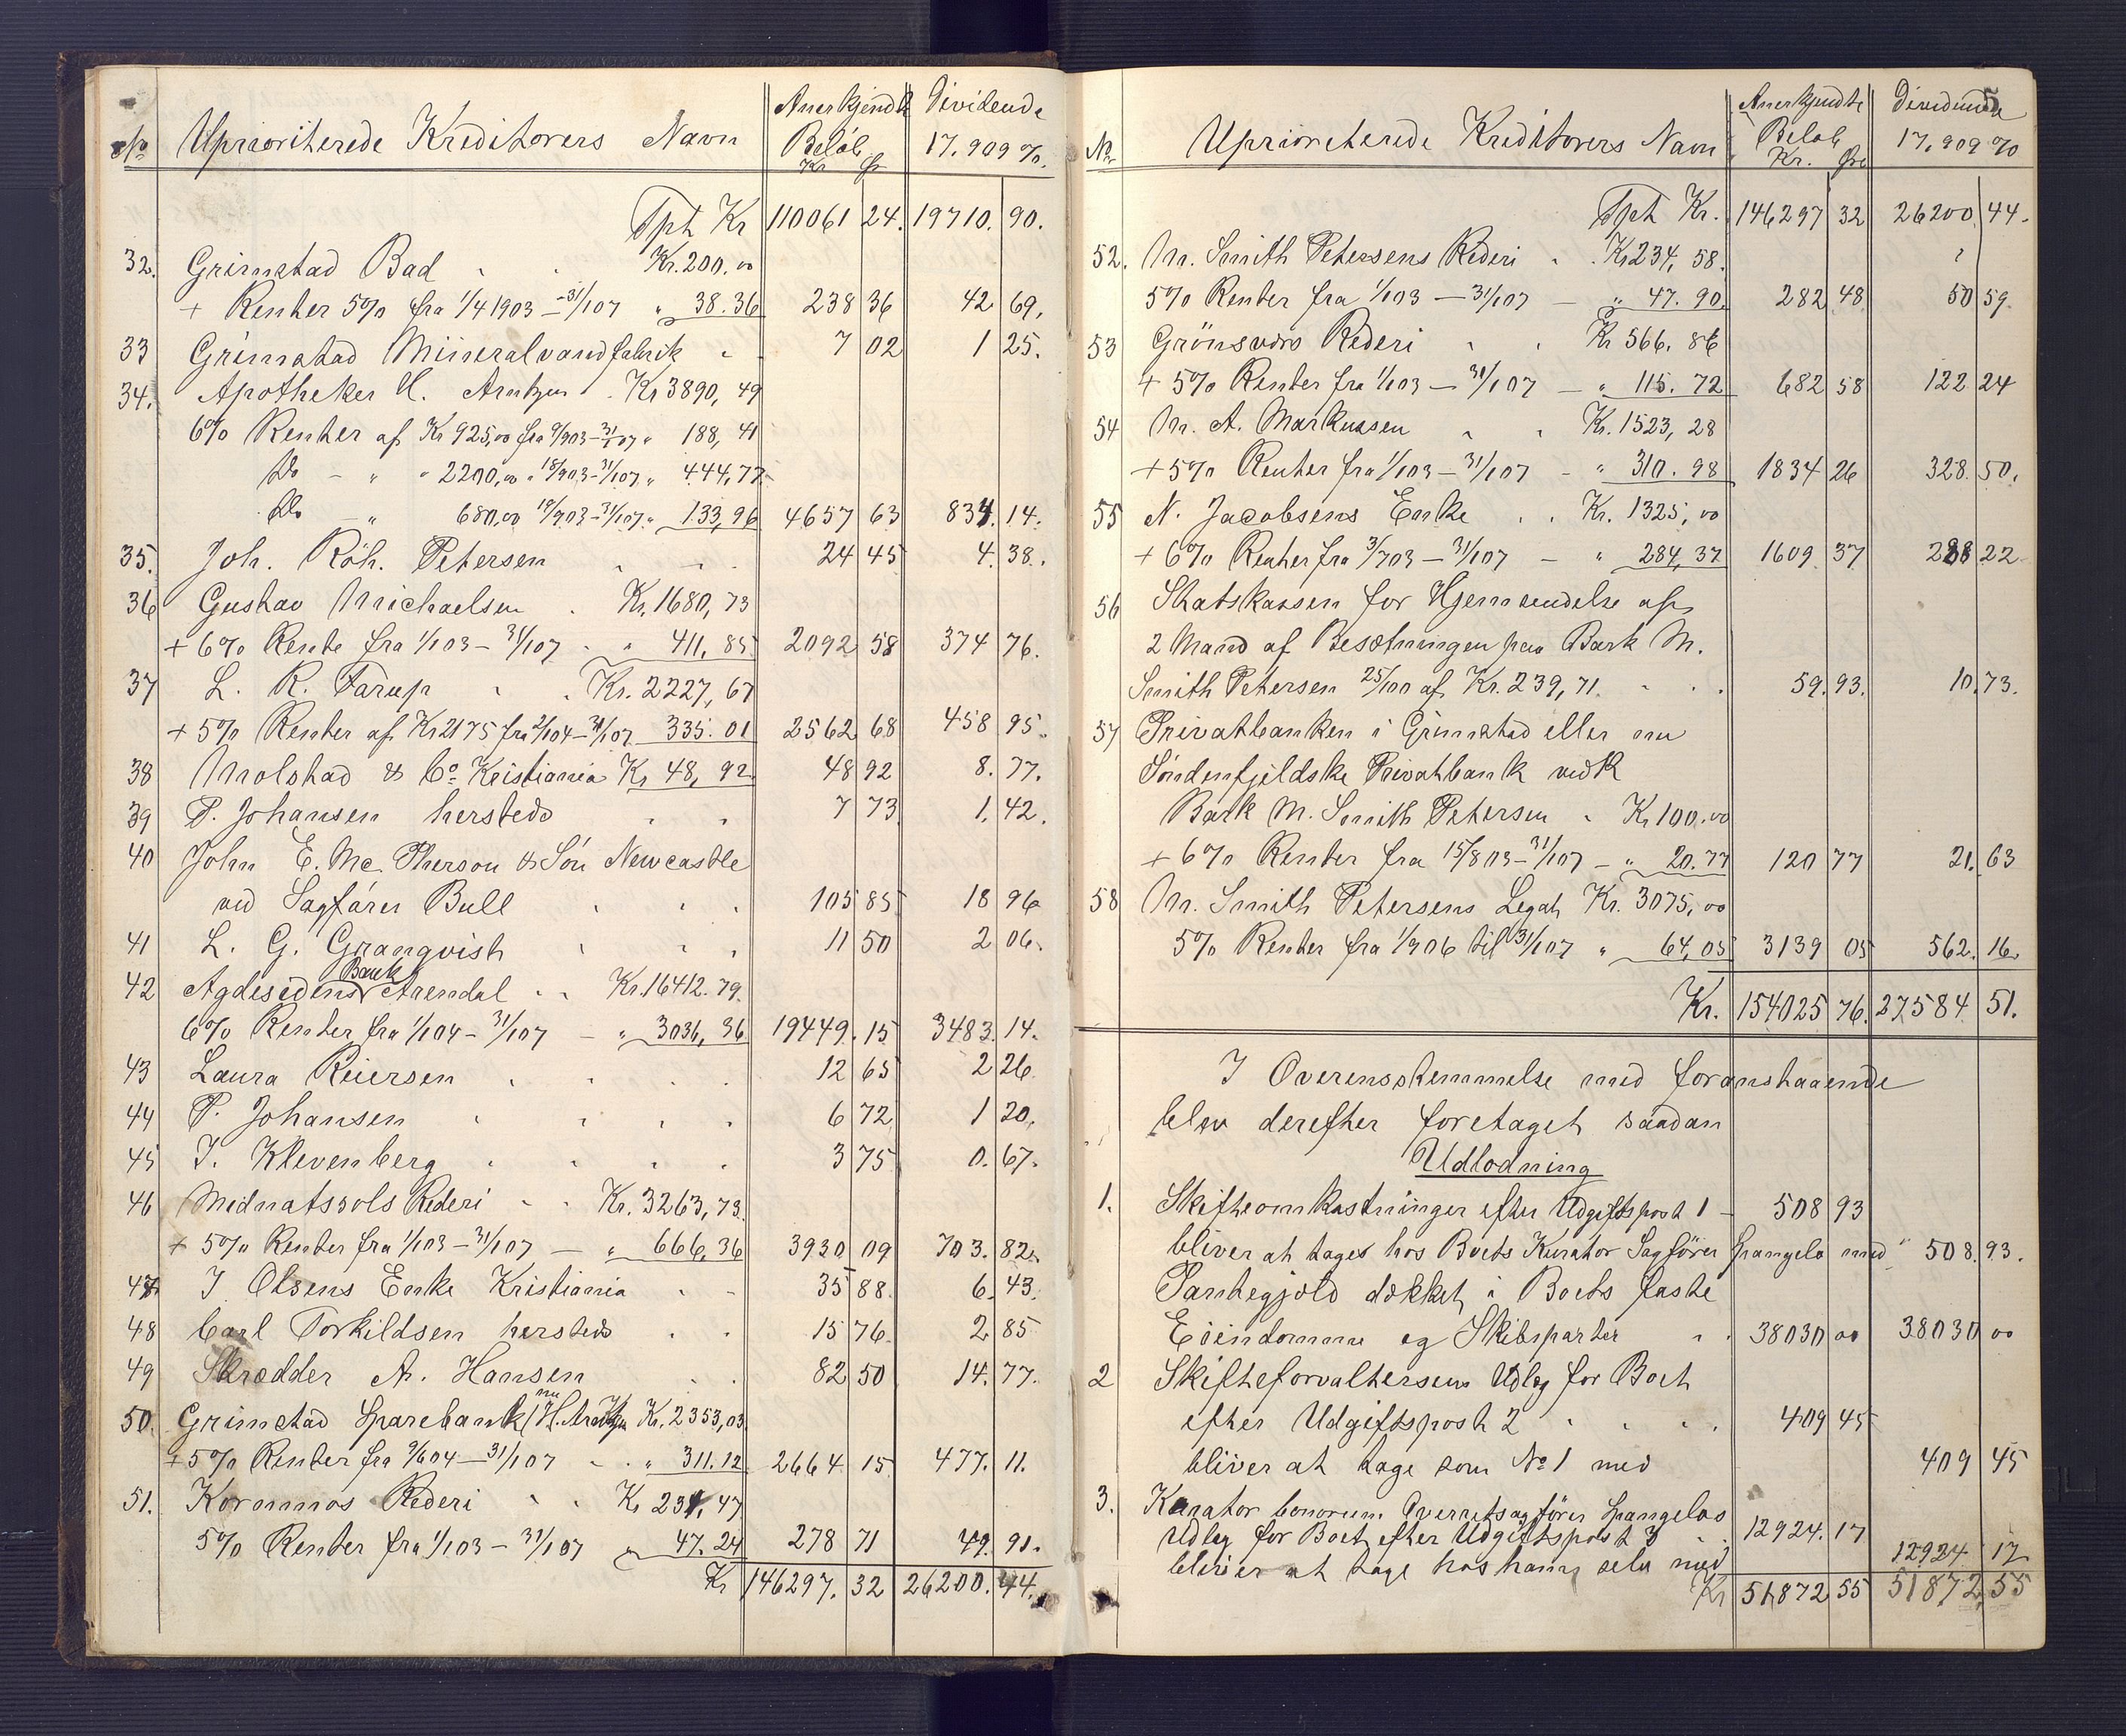 No Uprioriterede Kreditorers Navn Anerkjendte Beløb Kr Ør Dividende 17.909 %.
Tpt Kr 110061 24. 19710. 90.
32. Grimstad Bad Kr. 200.00
+ Renter 5% fra 1/4 1903 - 31/1 07 " 38.36 238 36 42 69.
33 Grimstad Mineralvandfabrik 7 02 1 25.
34. Apotheker H. Arntzen Kr 3890, 49
6% Renter af Kr 925,00 fra 9/9 03 - 31/1 07 " 188, 41
Do - " " 2200,00 " 18/9 03 - 31/1 07 " 444,77
Do - " 680,00 19/9 03 - 31/1 07 " 133,96 4657 63 834. 14.
35. Joh. Röh. Petersen 24 45 4. 38.
36 Gustav Michaelsen Kr. 1680, 73
+ 6% Rente fra 1/1 03 - 31/1 07 " 411, 85 2092 58 374 76.
37 L. R. Tarup Kr. 2227, 67
+ 5% Renter af Kr 2175 fra 2/1 04 - 31/1 07 335. 01 2562 68 458 95.
38 Molstad & Co Kristiania Kr 48, 92 48 92 8. 77.
39 P. Johansen hersteds 7 73 1. 42.
40 John E. Mc. Pherson & Són Newcastle
ved Sagfører Bull 105 85 18 96
41 L. G. Granqvist 11 50 2 06.
42 Agdesidens Bank Arendal Kr. 16412. 79.
6% Renter fra 1/1 04 - 31/1 07 - " 3036, 36 19449. 15 3483. 14.
43 Laura Reiersen 12 65 2 26.
44 P. Johansen 6 72 1 20.
45 J. Klevenberg 3 75 0. 67.
46 Midnatssols Rederi Kr. 3263, 73.
+ 5% Renter fra 1/1 03 - 31/1 07 - " 666, 36 3930 09 703. 82.
47 J. Olsens Enke Kristiania 35 88. 6. 43.
48 Carl Torkildsen hersteds 15 76. 2 85
49 Skrædder A. Hansen 82 50 14. 77.
50. Grimstad Sparebank (nu H. Arntzen Kr. 2353,03
+ 5% Renter fra 9/6 04 - 31/1 07 " 311.12 2664. 15 477. 11.
51. Korsmos Rederi Kr 231, 47
5% Renter fra 1/1 03 - 31/1 07 47. 24 278 71 49. 91.
Kr 146297. 32 26200. 44.
No Uprioriterede Kreditorers Navn Anerkjendte Beløb Kr. Øre Dividende 17.909 %
Tpt Kr. 146297 32 26200 44.
52. M. Smith Petersens Rederi Kr 234, 58.
5% Renter fra 1/1 03 - 31/1 07 - " 47. 90. 282 48 50 59.
53 Grönsvärs Rederi Kr 566. 86
+ 5% Renter fra 1/1 03 - 31/1 07 - " 115. 72 682 58 122 24
54 M. A. Markussen Kr. 1523, 28
+ 5% Renter fra 1/1 03 - 31/1 07 - " 310. 98 1834 26 328. 50.
55 N. Jacobsens Enke Kr. 1325,00
+ 6% Renter fra 3/7 03 - 31/1 07 - " 284, 37 1609 37 288 22
56 Statskassen for Hjemsendelse af
2 Mand af Besætningen paa Bark M.
Smith Petersen 25/100 af Kr. 239, 71. 59. 93. 10. 73.
57 Privatbanken i Grimstad eller nu
Søndenfjeldske Privatbank vedk
Bark M. Smith Petersen Kr 100.00
+ 6% Renter fra 15/8 03 - 31/1 07 - " 20. 77 120 77 21. 63
58 M. Smith Petersens Legat Kr. 3075,00
5% Renter fra 1/9 06 til 31/1 07 " 64, 05 3139 05 562. 16.
Kr. 154025 76. 27584 51.
I Overensstemmelse med foranstaaende
blev derefter foretaget saadan
Udlodning
1. Skifteomkostninger efter Udgiftspost 1 - 508 93
bliver at tages hos Boets Kurator Sagfører Spangelo med " 508. 93.
Pantegjæld dækket i Boets faste
Eiendomme og Skibsparter 38030 00 38030 00
2 Skifteforvalterens Udlæg for Boet
efter Udgiftspost 2 409 45
bliver at tage som No 1 med 409 45
3. Kurator bonorum Overretssagfører Spangelos
Udlæg for Boet efter Udgiftspost 3 12924. 17
bliver at tage hos ham selv med 12924 17
Kr 51872 55 51872,55